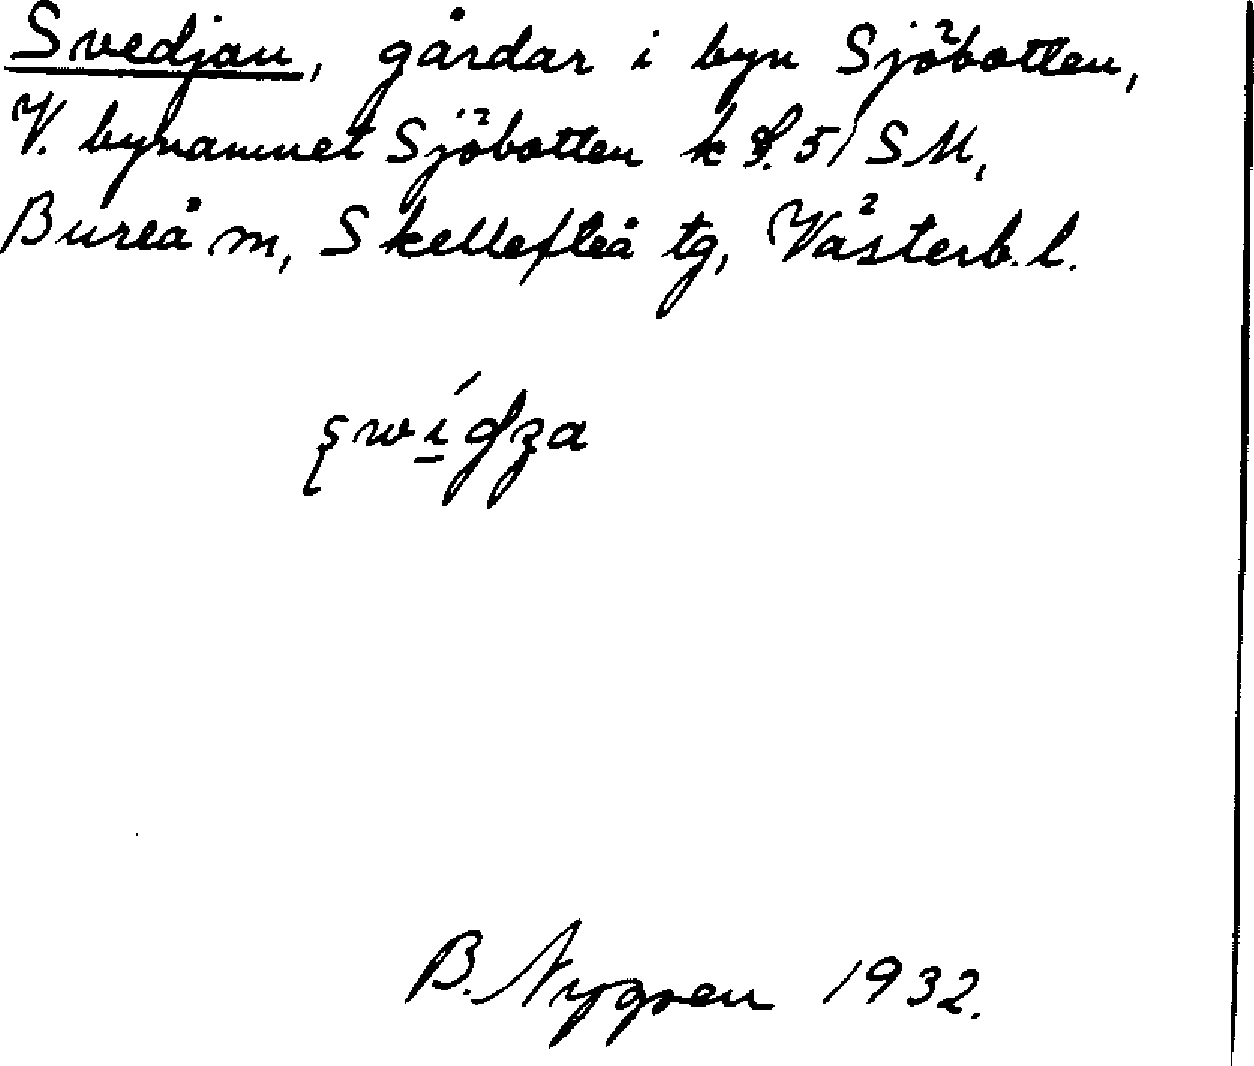 Svedjan, gårdar i byn Sjöbotten,
V. bynamnet Sjöbotten k S. 51 SM,
Bureå m, Skellefteå tg, Västerb. l.
B. Nygren 1932.